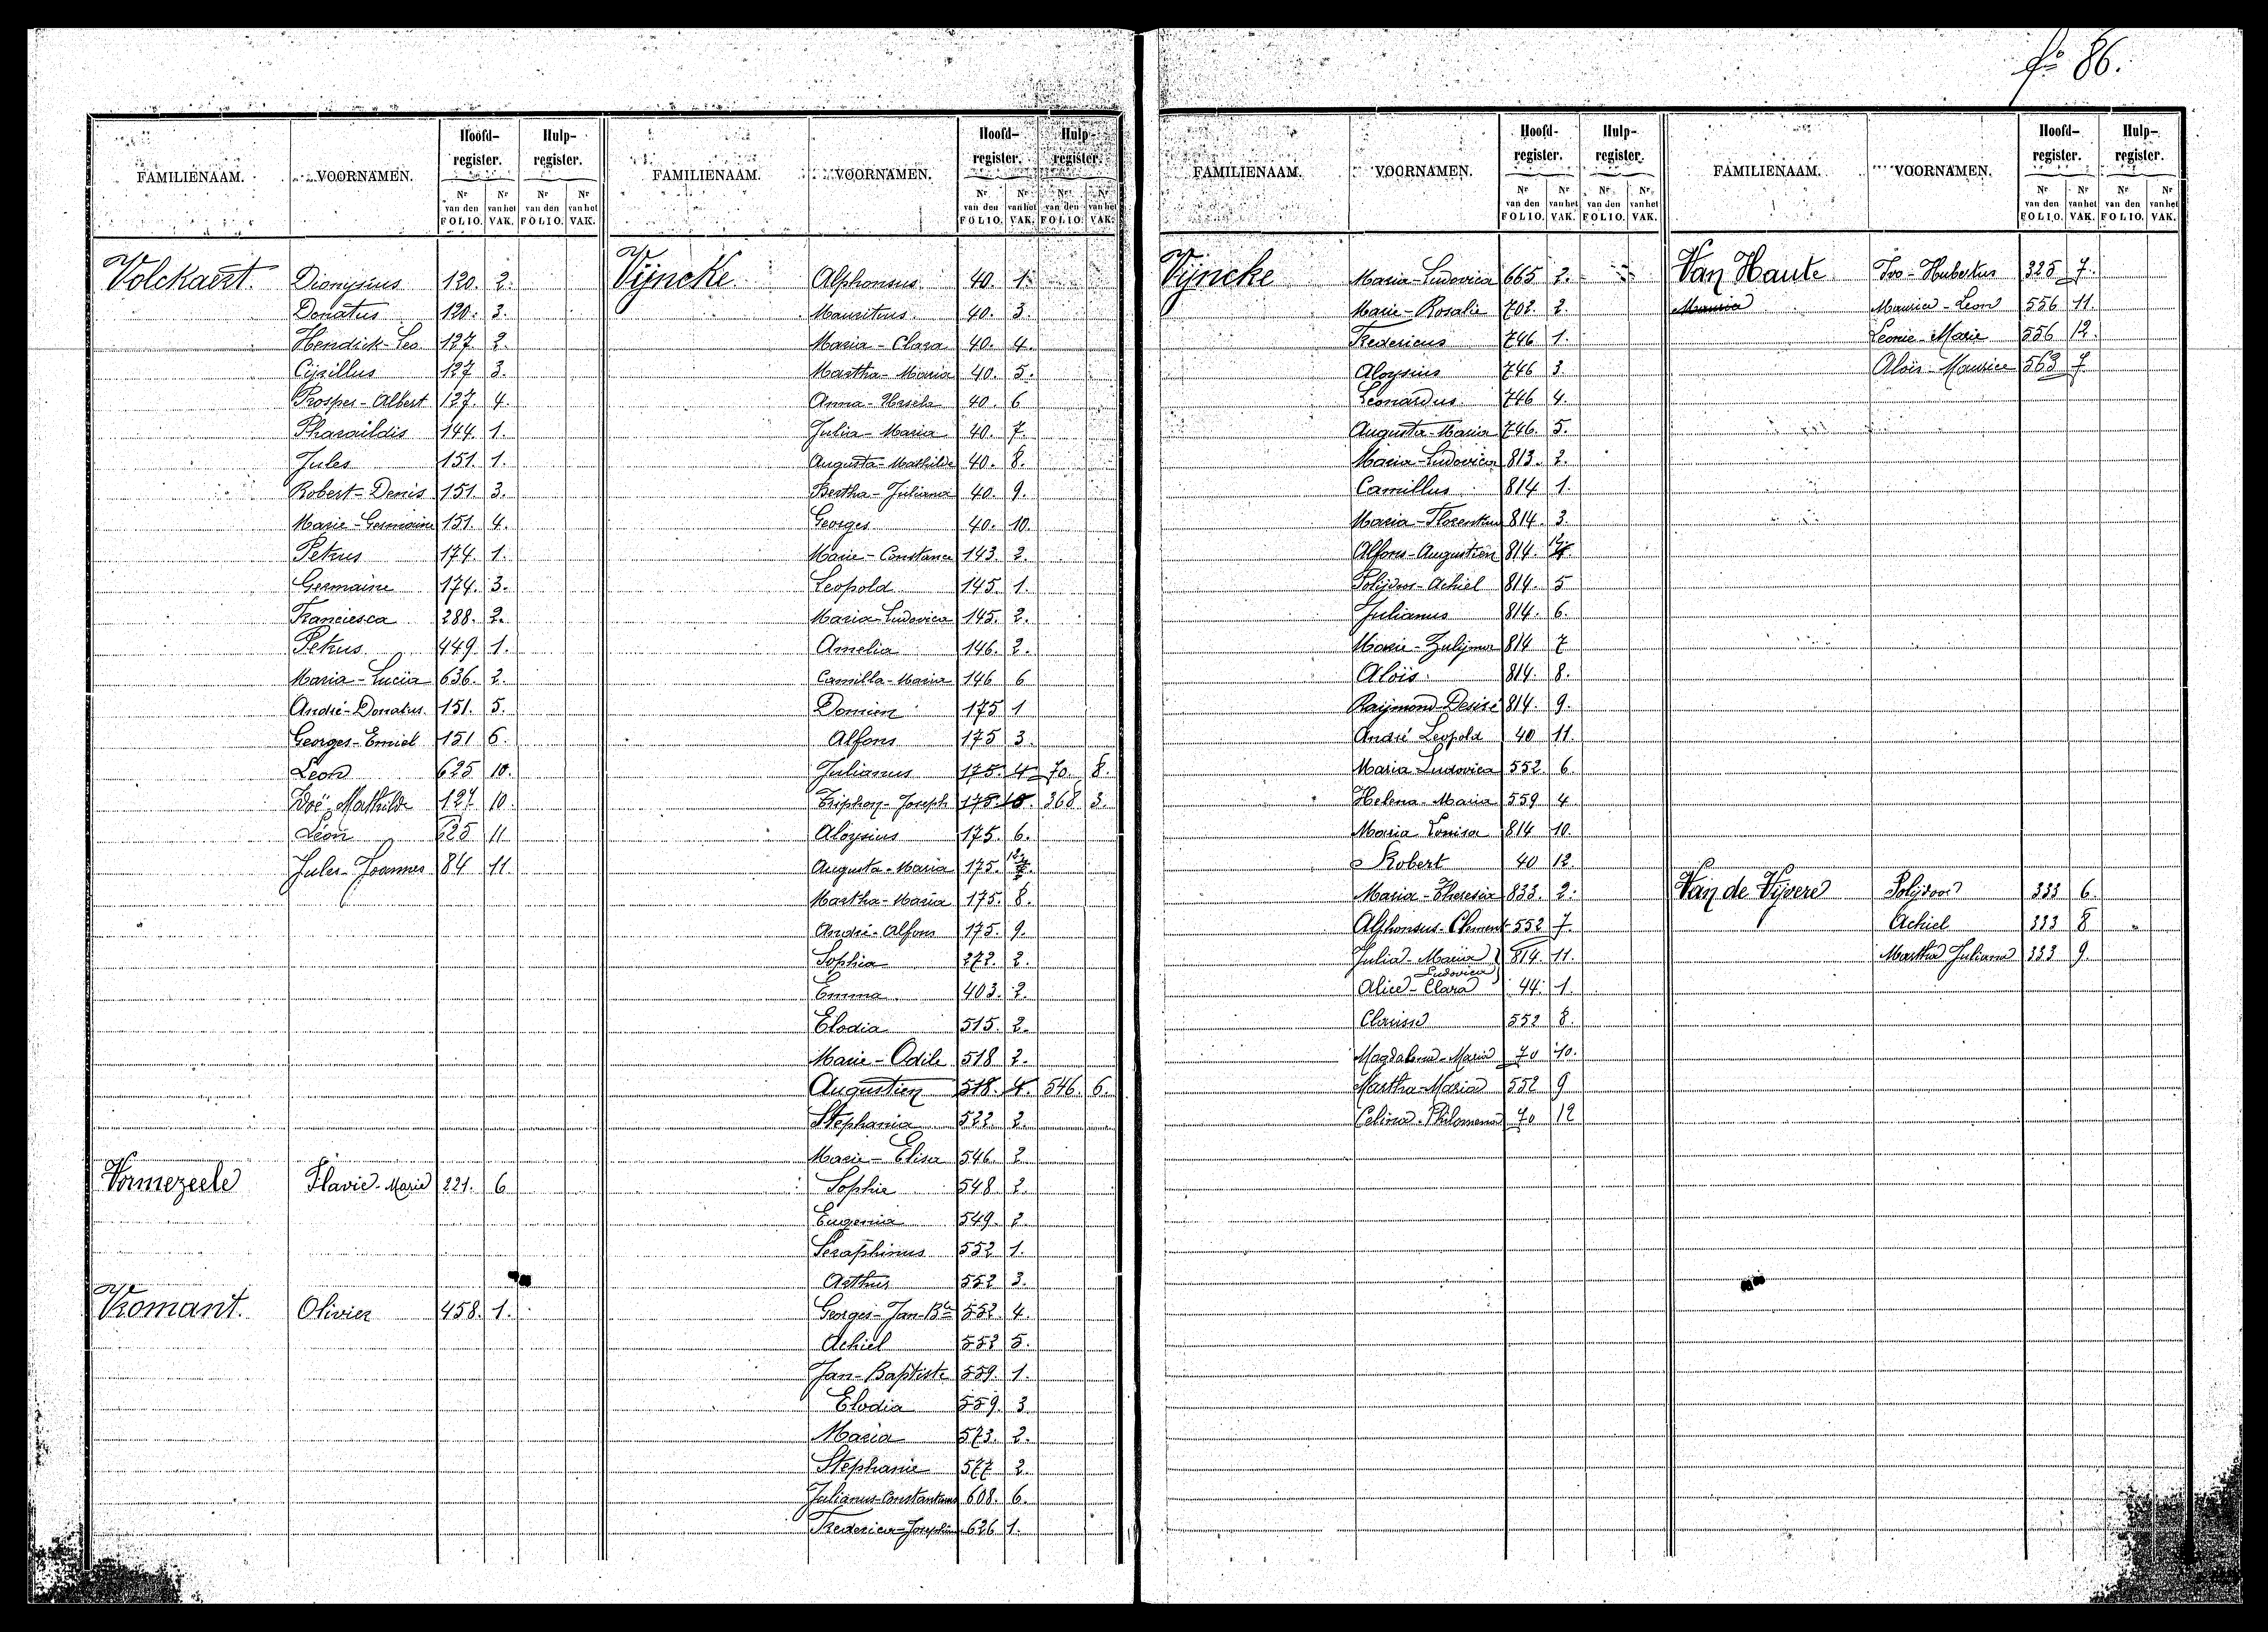 fo 86.
FAMILIENAAM. VOORNAMEN. Hoofd-register. Hulp-register.
Nr van den FOLIO. Nr van het VAK. Nr van den FOLIO. Nr van het VAK.
Volckaert. Dionysius 120. 2.
Donatus 120. 3.
Hendrick-Leo. 127. 2.
Cijrillus 127 3.
Prosper-Albert 127. 4.
Pharaildis 144. 1.
Jules 151. 1.
Robert-Denis 151. 3.
Marie-Germaine 151. 4.
Petrus 174. 1.
Germaine 174. 3.
Franciesca 288. 2.
Petrus 449. 1.
Maria-Lucia 636. 2.
André-Donatus. 151. 5.
Georges-Emiel 151 6.
Leon 625 10.
Zoë-Mathilde 127. 10.
Léon 625 11
Jules-Joannes 84 11.
Vormezeele Flavie-Marie 221. 6
Vromant. Olivier 458. 1.
FAMILIENAAM. VOORNAMEN. Hoofd-register. Hulp-register.
Nr van den FOLIO. Nr van het VAK. Nr van den FOLIO. Nr van het VAK.
Vijncke Alphonsus 40. 1.
Mauritius 40. 3.
Maria-Clara 40. 4.
Martha-Maria 40. 5.
Anna-Ursule 40. 6
Julia-Maria 40. 7.
Augusta-Mathilde 40. 8.
Bertha-Juliana 40. 9.
Georges 40. 10.
Marie-Constance 143. 2.
Leopold 145. 1.
Maria-Ludovica 145. 2.
Amelia 146. 2.
Camilla-Maria 146 6
Domien 175 1
Alfons 175 3.
Julianus 175. 4 70. 8.
Triphon-Joseph 175. 368 3.
Aloysius 175. 6.
Augusta-Maria 175. 12
Martha-Maria 175. 8.
André-Alfons 175. 9.
Sophia 272. 2.
Emma 403. 2.
Elodia 515. 2.
Marie-Odile 518 2.
Augustien 518. 4. 546. 6.
Stephania 522 2.
Marie-Elisa 546. 2
Sophie 548 2.
Eugenia 549. 2
Seraphinus 552 1.
Arthur 552 3.
Georges-Jan-Bte 552. 4.
Achiel 552 5.
Jan-Baptiste 559. 1.
Elodia 559. 3
Maria 573. 2.
Stephanie 577 2.
Julianus-Constantinus 608. 6.
Frederica-Josephina 626 1.
FAMILIENAAM. VOORNAMEN. Hoofd-register. Hulp-register.
Nr van den FOLIO. Nr van het VAK. Nr van den FOLIO. Nr van het VAK.
Vijncke Maria-Ludovica 665 2.
Marie-Rosalie 702. 2.
Fredericus 746 1.
Aloysius 746 3
Leonardus 746 4.
Augusta-Maria 746. 5.
Maria-Ludovica 813. 2.
Camillus 814 1.
Maria-Florentina 814. 3.
Alfons-Augustien 814. 12
Polijdoor-Achiel 814. 5
Julianus 814. 6.
Marie-Zulijma 814 7
Aloïs 814. 8.
Raijmond-Desiré 814. 9.
André Leopold 40 11.
Maria Ludovica 552 6.
Helena-Maria 559 4
Maria Louisa 814 10.
Robert 40 12.
Maria-Theresia 833. 2.
Alphonsus-Clement 552 7.
Julia-Maria Ludovica 814. 11.
Alice-Clara 44. 1.
Clarisse 552 8.
Magdalena-Maria 70 10.
Martha-Maria 552 9
Celina-Philomena 70 12
FAMILIENAAM. VOORNAMEN. Hoofd-register. Hulp-register.
Nr van den FOLIO. Nr van het VAK. Nr van den FOLIO. Nr van het VAK.
Van Haute Ivo-Hubertus 325 7.
Maurice Maurice-Leon 556 11.
Leonie-Marie 556 12.
Aloïs-Maurice 563 7
Van de Vijvere Polijdoor 333 6.
Achiel 333 8
Martha Juliana 333 9.